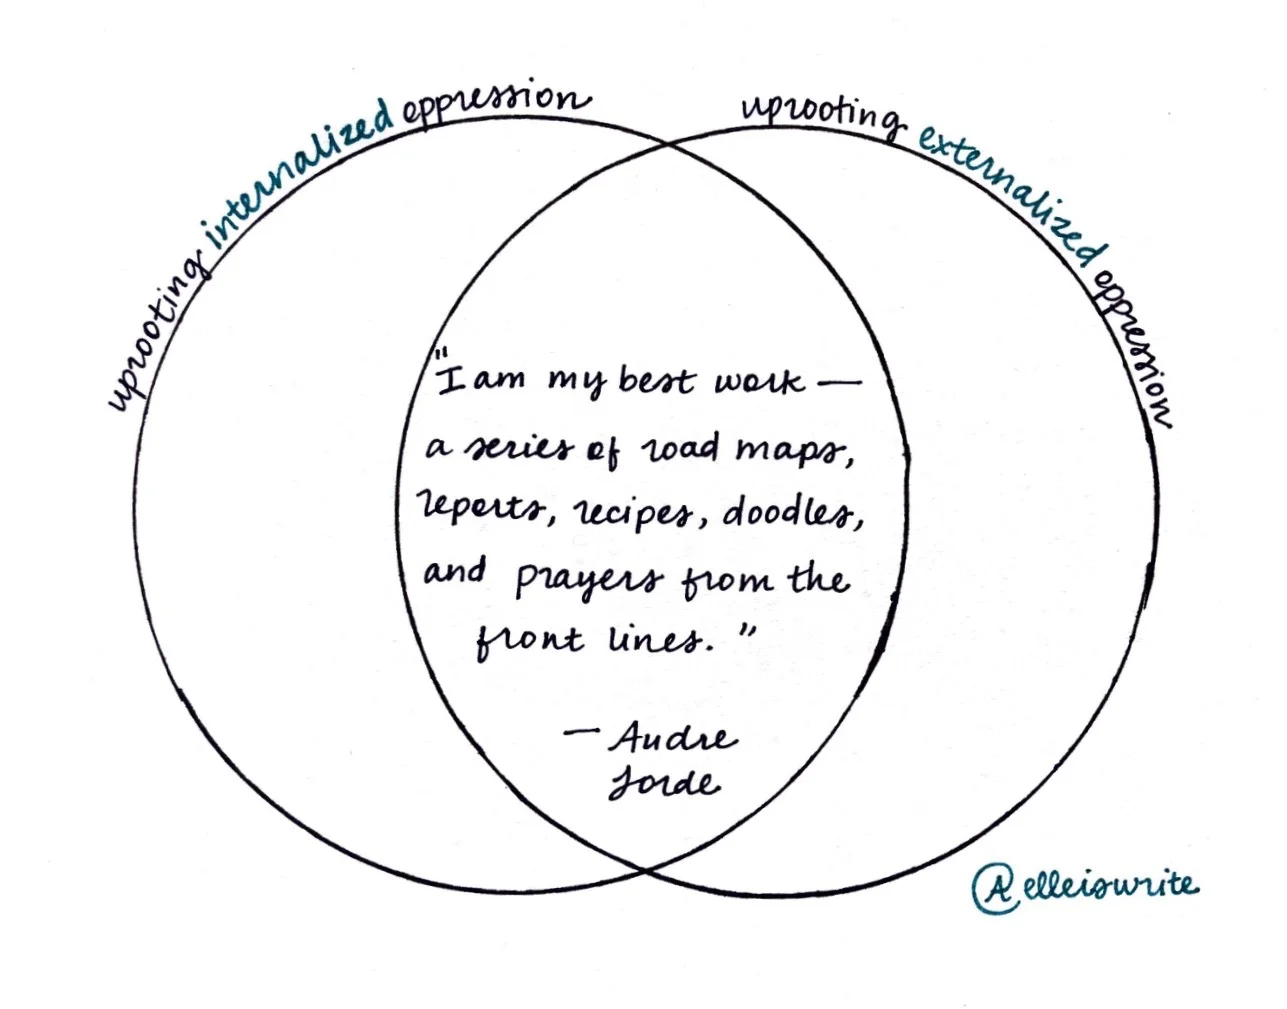 uprooting internalized oppression
uprooting externalized oppression
"I am my best work —
a series of road maps,
reports, recipes, doodles,
and prayers from the
front lines."
— Audre
Lorde
@elleiswrite